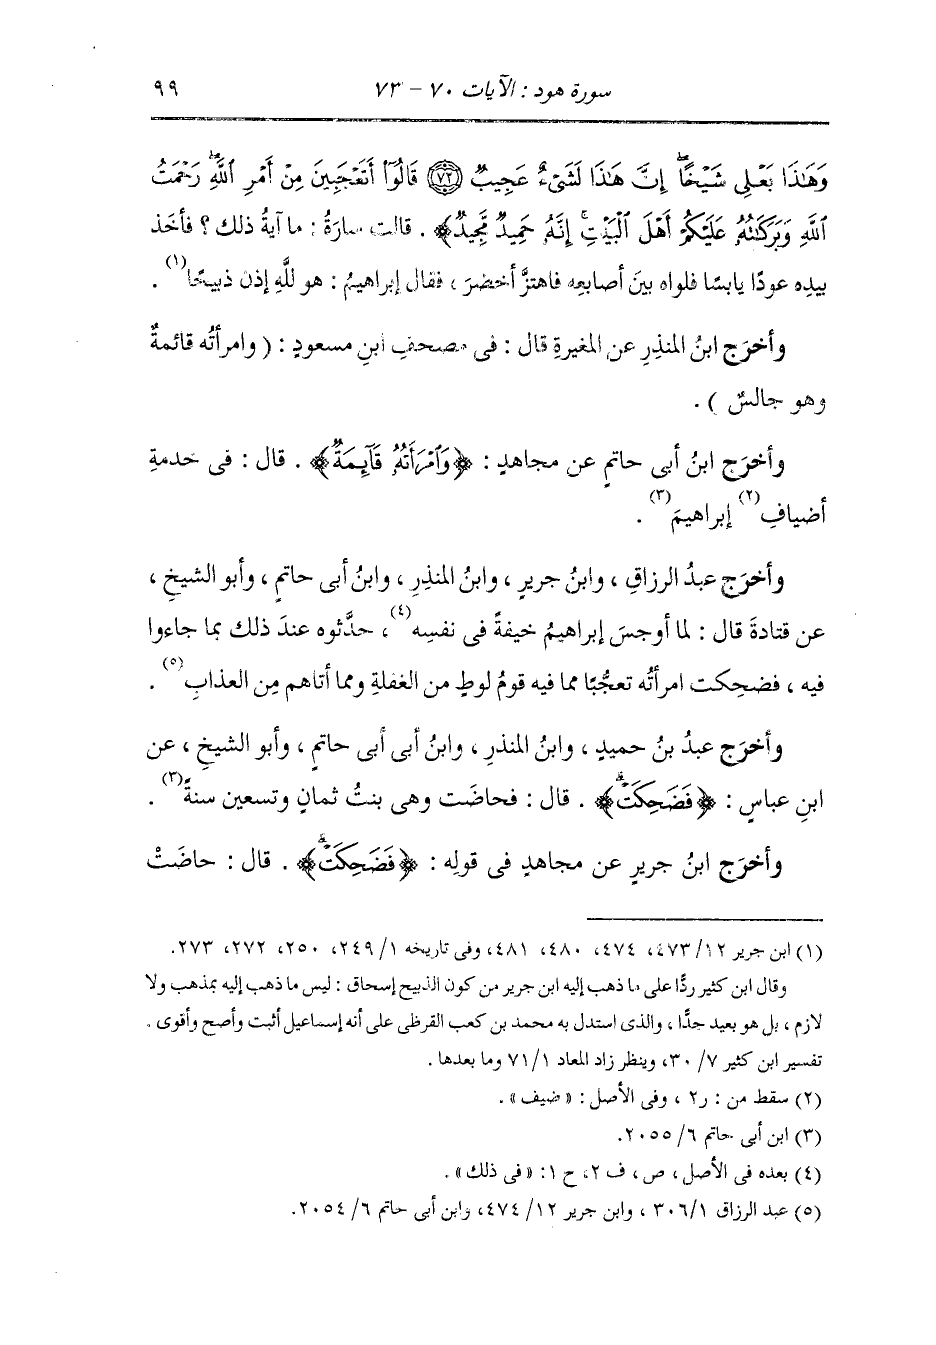 سورة هود : الآيات ٧٠ - ٧٣ ٩٩
وَهَٰذَا بَعْلِى شَيْخًا ۖ إِنَّ هَٰذَا لَشَىْءٌ عَجِيبٌ (٧٢) قَالُوٓا۟ أَتَعْجَبِينَ مِنْ أَمْرِ ٱللَّهِ ۖ رَحْمَتُ
ٱللَّهِ وَبَرَكَٰتُهُۥ عَلَيْكُمْ أَهْلَ ٱلْبَيْتِ ۚ إِنَّهُۥ حَمِيدٌ مَّجِيدٌ﴾ . قالت سارَةُ : ما آيةُ ذلك ؟ فأخَذ
بيدِه عودًا يابسًا فلواه بينَ أصابعِه فاهتزَّ أخضرَ ، فقال إبراهيمُ : هو للَّهِ إذن ذبيحًا(١) .
وأخرَج ابنُ المنذرِ عن المغيرةِ قال : فى مصحفِ ابنِ مسعودٍ : ( وامرأتُه قائمةٌ
وهو جالسٌ ) .
وأخرَج ابنُ أبى حاتمٍ عن مجاهدٍ : ﴿وَٱمْرَأَتُهُۥ قَآئِمَةٌ﴾ . قال : فى خدمةِ
أضيافِ(٢) إبراهيمَ(٣) .
وأخرَج عبدُ الرزاقِ ، وابنُ جريرٍ ، وابنُ المنذرِ ، وابنُ أبى حاتمٍ ، وأبو الشيخِ ،
عن قتادةَ قال : لما أوجس إبراهيمُ خيفةً فى نفسِه(٤) ، حدَّثوه عندَ ذلك بما جاءوا
فيه ، فضحِكت امرأتُه تعجُّبًا مما فيه قومُ لوطٍ من الغفلةِ ومما أتاهم مِن العذابِ(٥) .
وأخرَج عبدُ بنُ حميدٍ ، وابنُ المنذرِ ، وابنُ أبى أبى حاتمٍ ، وأبو الشيخِ ، عن
ابنِ عباسٍ : ﴿فَضَحِكَتْ﴾ . قال : فحاضَت وهى بنتُ ثمانٍ وتسعين سنةً(٣) .
وأخرَج ابنُ جريرٍ عن مجاهدٍ فى قولِه : ﴿فَضَحِكَتْ﴾ . قال : حاضَتْ
(١) ابن جرير ١٢/ ٤٧٣، ٤٧٤، ٤٨٠، ٤٨١، وفى تاريخه ١/ ٢٤٩، ٢٥٠، ٢٧٢، ٢٧٣.
وقال ابن كثير ردًّا على ما ذهب إليه ابن جرير من كون الذبيح إسحاق : ليس ما ذهب إليه بمذهب ولا
لازم ، بل هو بعيد جدًّا ، والذى استدل به محمد بن كعب القرظى على أنه إسماعيل أثبت وأصح وأقوى .
تفسير ابن كثير ٧/ ٣٠، وينظر زاد المعاد ٧١/١ وما بعدها .
(٢) سقط من : ر٢ ، وفى الأصل : « ضيف» .
(٣) ابن أبى حاتم ٦/ ٢٠٥٥.
(٤) بعده فى الأصل ، ص ، ف ٢، ح ١: «فى ذلك» .
(٥) عبد الرزاق ٣٠٦/١ ، وابن جرير ١٢/ ٤٧٤، وابن أبى حاتم ٦/ ٢٠٥٤.